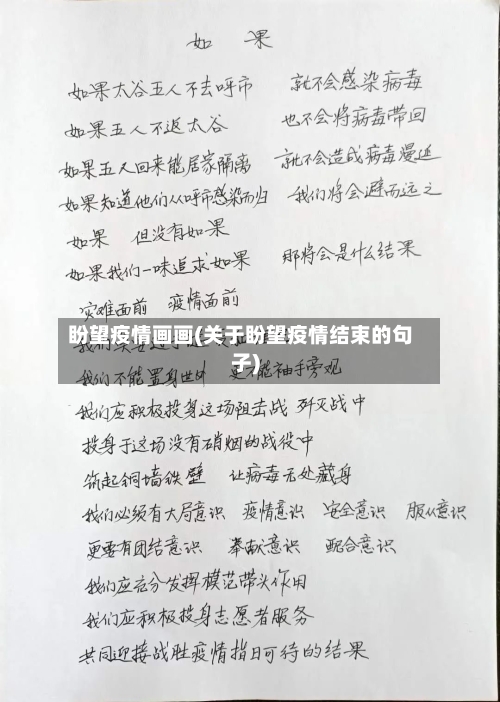 如果
如果太谷五人不去呼市 就不会感染病毒
如果五人不返太谷 也不会将病毒带回
如果五人回来能居家隔离 就不会造成病毒漫延
如果知道他们从呼市感染而归 我们将会避而远之
如果 但没有如果
如果我们一味追求如果 那将会是什么结果
灾难面前 疫情面前
盼望疫情画画(关于盼望疫情结束的句
子)
我们不能置身世外 更不能袖手旁观
我们应积极投身这场阻击战 歼灭战中
投身于这场没有硝烟的战役中
筑起铜墙铁壁 让病毒无处藏身
我们必须有大局意识 疫情意识 安全意识 服从意识
更要有团结意识 奉献意识 配合意识
我们应充分发挥模范带头作用
我们应积极投身志愿者服务
共同迎接战胜疫情指日可待的结果